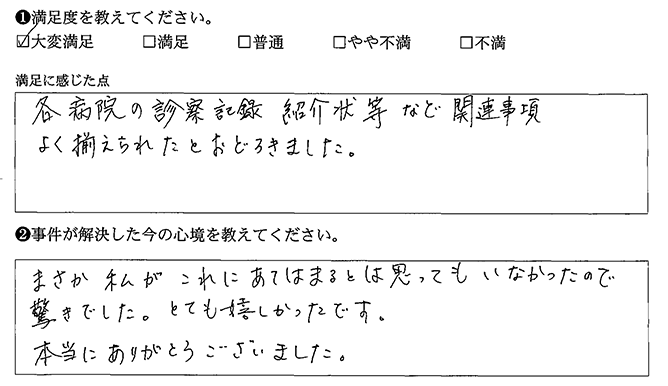 ❶満足度を教えてください。
☑大変満足 □満足 □普通 □やや不満 □不満
満足に感じた点
各病院の診察記録 紹介状等 など 関連事項
よく揃えられたとおどろきました。
❷事件が解決した今の心境を教えてください。
まさか 私が これに あてはまるとは思っても いなかったので
驚きでした。とても嬉しかったです。
本当に ありがとう ございました。